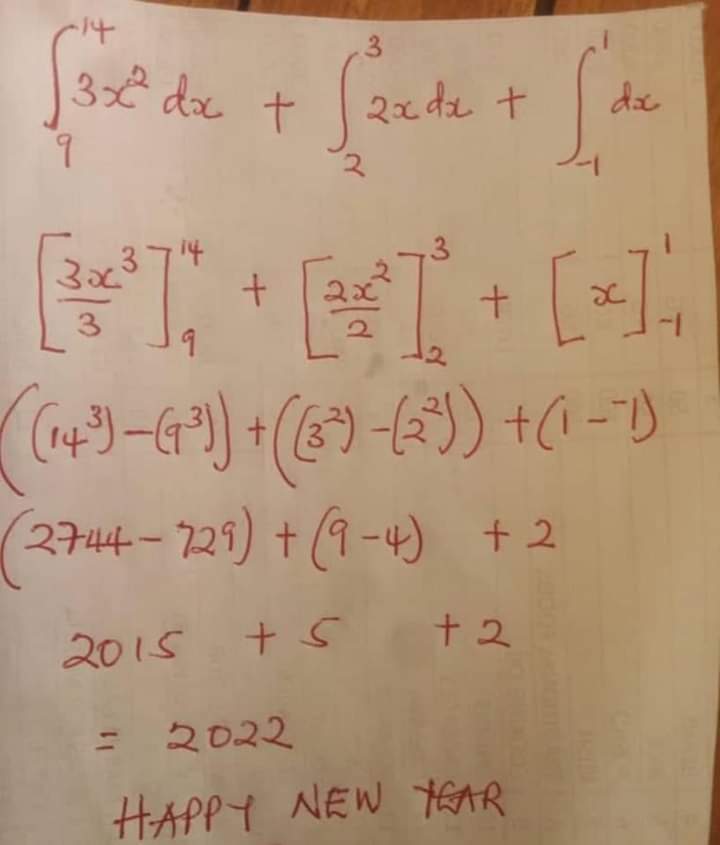 ∫₉¹⁴ 3x² dx + ∫₂³ 2x dx + ∫₋₁¹ dx
[3x³/3]₉¹⁴ + [2x²/2]₂³ + [x]₋₁¹
((14³)-(9³))+((3²)-(2²))+(1-⁻1)
(2744-729)+(9-4) +2
2015 +5 +2
= 2022
HAPPY NEW YEAR